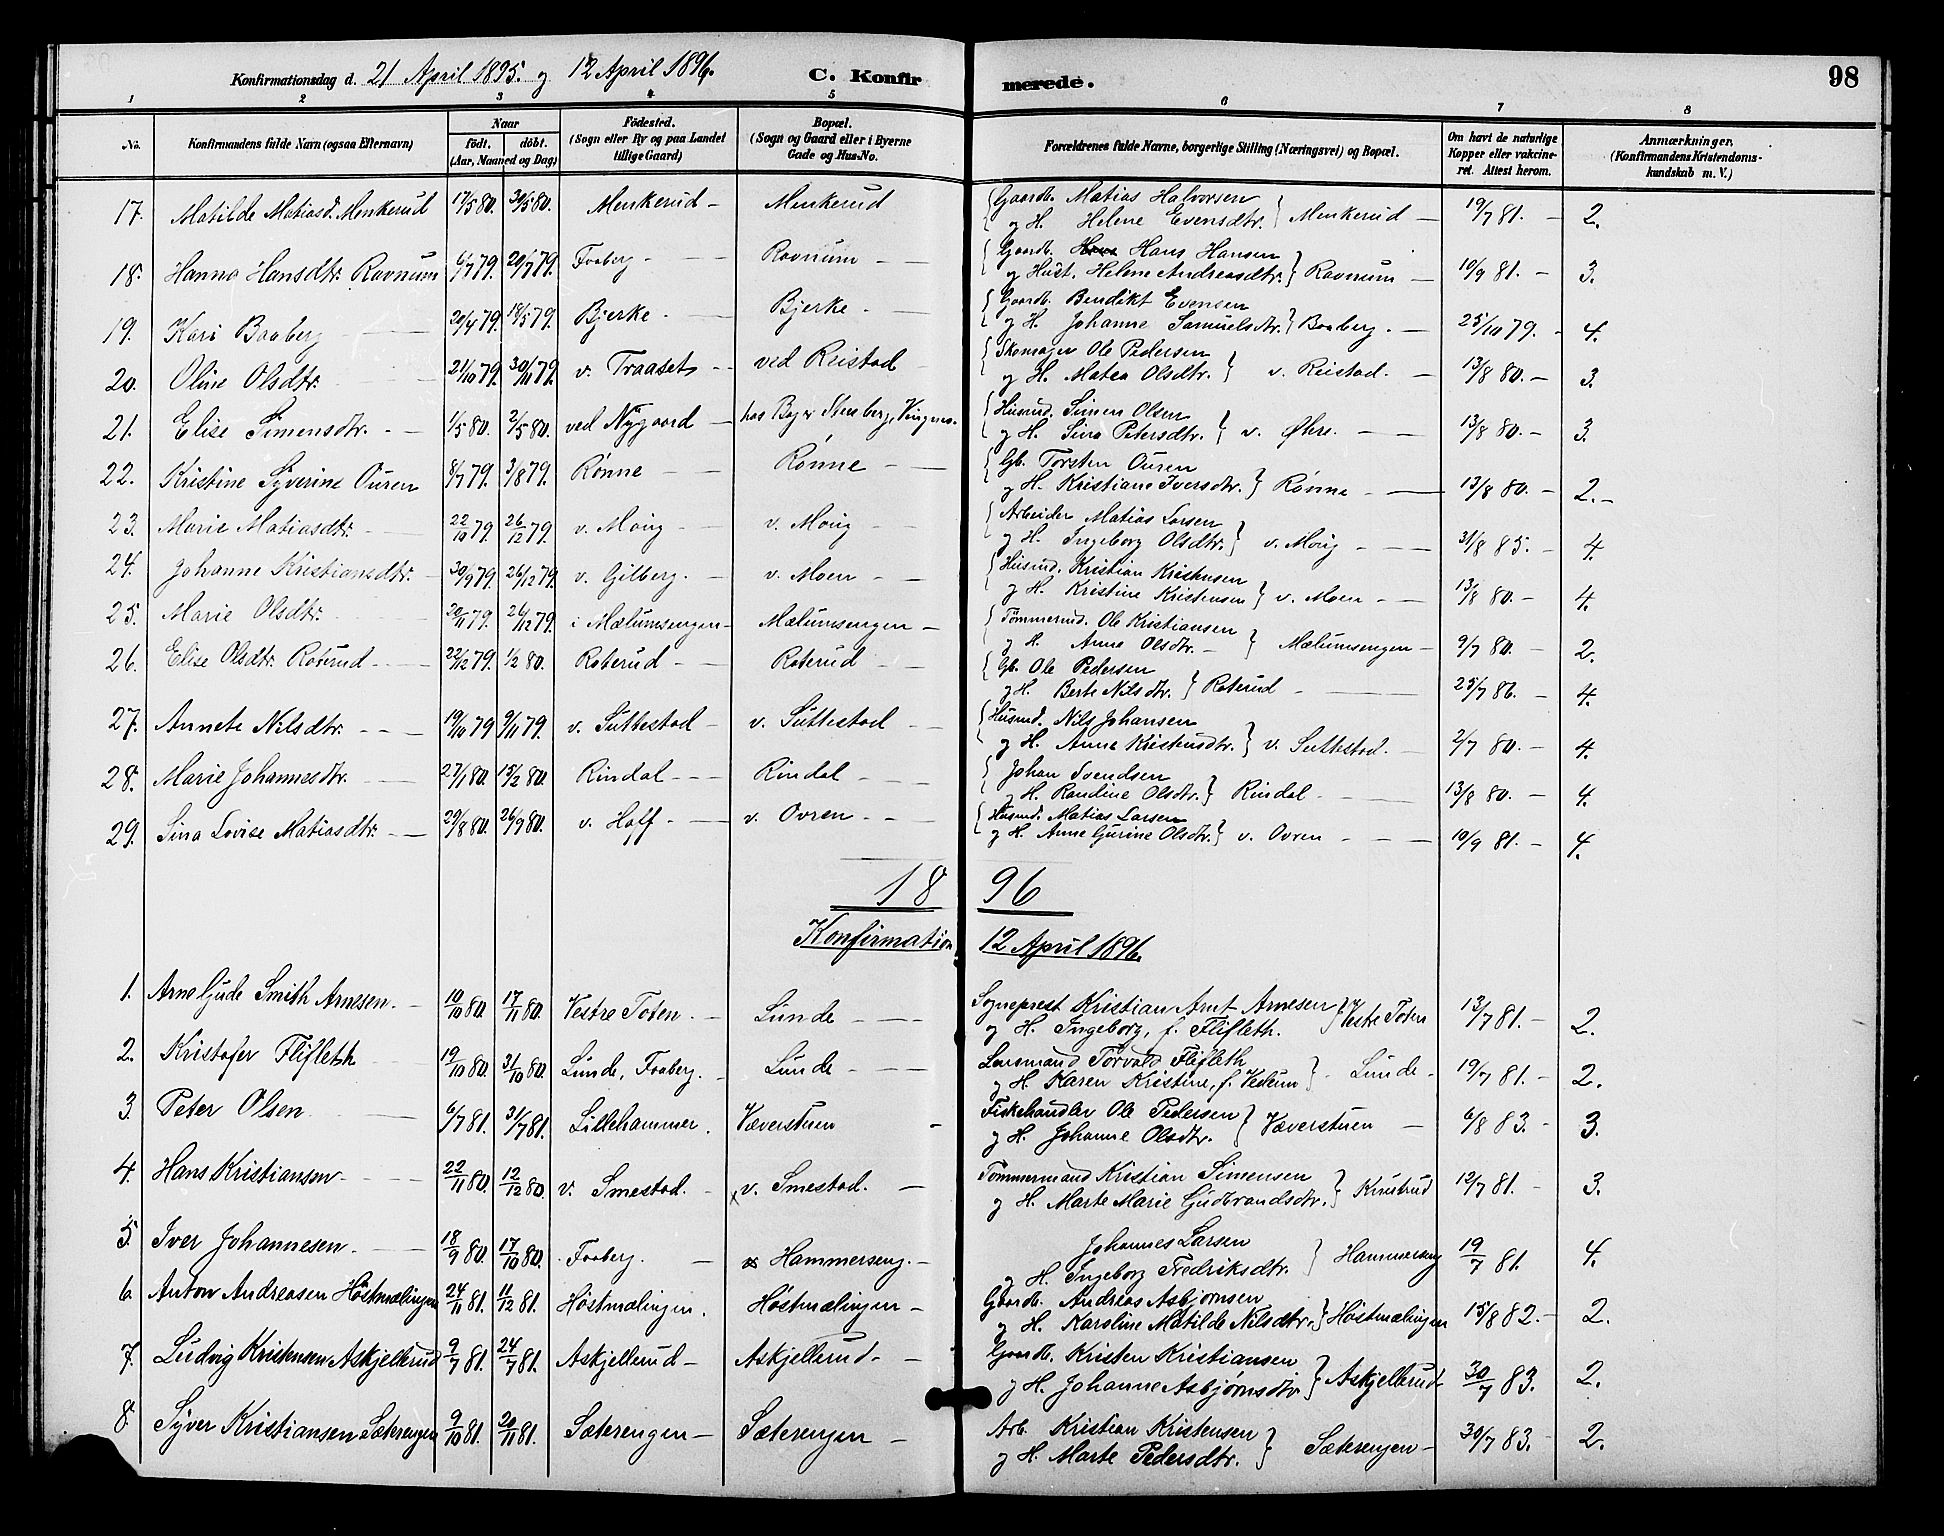 Konfirmationsdag d. 21 April 1895. og 12 April 1896. C. Konfirmerede. 98
1 2 3 4 5 6 7 8
No. Konfirmandens fulde Navn (ogsaa Efternavn) Naar født. døbt. (Aar, Maaned og Dag) Fødested. (Sogn eller By og paa Landet tillige Gaard) Bopæl. (Sogn og Gaard eller i Byerne Gade og Hus-No. Forældrenes fulde Navne, borgerlige Stilling (Næringsvei) og Bopæl. Om havt de naturlige Kopper eller vakcineret. Attest herom. Anmærkninger. (Konfirmandens Kristendomskundskab m. V.)
17. Matilde Matiasd. Menkerud 17/5 80. 30/5 80. Menkerud Menkerud Gaardb. Matias Halvorsen
og H. Helene Evensdtr. Menkerud 19/7 81. 2.
18. Hanna Hansdtr. Ravnum 6/7 79. 20/7 79. Faaberg Ravnum Gaardb. Hans Hansen
og Hust. Helene Andreasdtr. Ravnum 10/9 81. 3.
19. Kari Baaberg 20/4 79. 18/5 79. Bjerke Bjerke Gaardb. Bendikt Evensen
og H. Johanne Samuelsdtr. Baaberg. 25/10 79. 4.
20. Oline Olsdtr. 21/10 79. 30/11 79. v. Traaset ved Reistad Skomager Ole Pedersen
og H. Matea Olsdtr. v. Reistad. 13/8 80. 3.
21. Elise Simensdtr. 1/5 80. 2/5 80. ved Nygaard hos Stenberg, Vingnes. Husmd. Simen Olsen
og H. Sina Petersdtr. v. Øhre. 13/8 80. 3.
22. Kristine Syverine Ouren 8/7 79. 3/8 79. Rønne Rønne Gb. Torsten Ouren
og H. Kristiane Iversdtr. Rønne 13/8 80. 2.
23. Marie Matiasdtr. 22/10 79. 26/12 79. v. Moug v. Moug Arbeider Matias Larsen
og H. Ingeborg Olsdtr. v. Moug 31/8 85. 4.
24. Johanne Kristiansdtr. 30/9 79. 26/12 79. v. Gilberg. v. Moen Husmd. Kristian Kristensen
og H. Kristine Kristensen v. Moen 13/8 80. 4.
25. Marie Olsdtr. 20/11 79. 26/12 79. i Mælumsengen Mælumsengen Tømmermd. Ole Kristiansen
og H. Anne Olsdtr. Mælumsengen 9/7 80. 2.
26. Elise Olsdtr. Roterud 22/12 79. 1/2 80. Roterud Roterud Gb. Ole Pedersen
og H. Berte Nilsdtr. Roterud 25/7 86. 4.
27. Annete Nilsdtr. 19/10 79 9/11 79. v. Suttestad v. Suttestad Husmd. Nils Johansen
og H. Anne Kristensdtr. v. Suttestad. 2/7 80. 4.
28. Marie Johannesdtr. 27/1 80. 15/2 80. Rindal Rindal Johan Svendsen
og H. Randine Olsdtr. Rindal. 13/8 80. 4.
29. Sina Lovise Matiasdtr. 29/8 80. 26/9 80. v. Hoff. v. Ovren Husmd. Matias Larsen
og H. Anne Gurine Olsdtr. v. Ovren 10/9 81. 4.
1896
Konfirmation 12 April 1896.
1. Arne Gude Smith Arnesen. 10/10 80. 17/11 80. Vestre Toten. Lunde Sogneprest Kristian Arnt Arnesen
og H. Ingeborg, f. Flifleth. Vestre Toten 13/7 81. 2.
2. Kristofer Flifleth 19/10 80. 31/10 80. Lunde, Faaberg. Lunde Lensmand Torvald Flifleth
og H. Karen Kristine, f. Vedum Lunde 19/7 81. 2.
3. Peter Olsen 6/7 81. 31/7 81. Lillehammer. Væverstuen Fiskehandler Ole Pedersen
og H. Johanne Olsdtr. Væverstuen 6/8 83. 3.
4. Hans Kristiansen 22/11 80. 12/12 80. v. Smestad. v. Smestad. Tømmermand Kristian Simensen
og H. Marte Marie Gudbrandsdtr. Knutrud 12/7 81. 3.
5. Iver Johannesen. 18/9 80. 17/10 80. Faaberg. Hammerseng. Johannes Larsen
og H. Ingeborg Fredriksdtr. Hammerseng 19/7 81. 4.
6. Anton Andreasen Høstmælingen 24/11 81. 11/12 81. Høstmælingen. Høstmælingen Gaardb. Andreas Asbjørnsen
og H. Karoline Matilde Nilsdtr. Høstmælingen 15/8 82. 2.
7. Ludvig Kristensen Askjellerud 9/7 81. 24/7 81. Askjellerud Askjellerud Gaardb. Kristen Kristiansen
og H. Johanne Asbjørnsdtr. Askjellerud 30/7 83. 2.
8. Syver Kristiansen Sæterengen 9/10 81. 20/11 81. Sæterengen Sæterengen Arb. Kristian Kristensen
og H. Marte Pedersdtr. Sæterengen 30/7 83. 2.